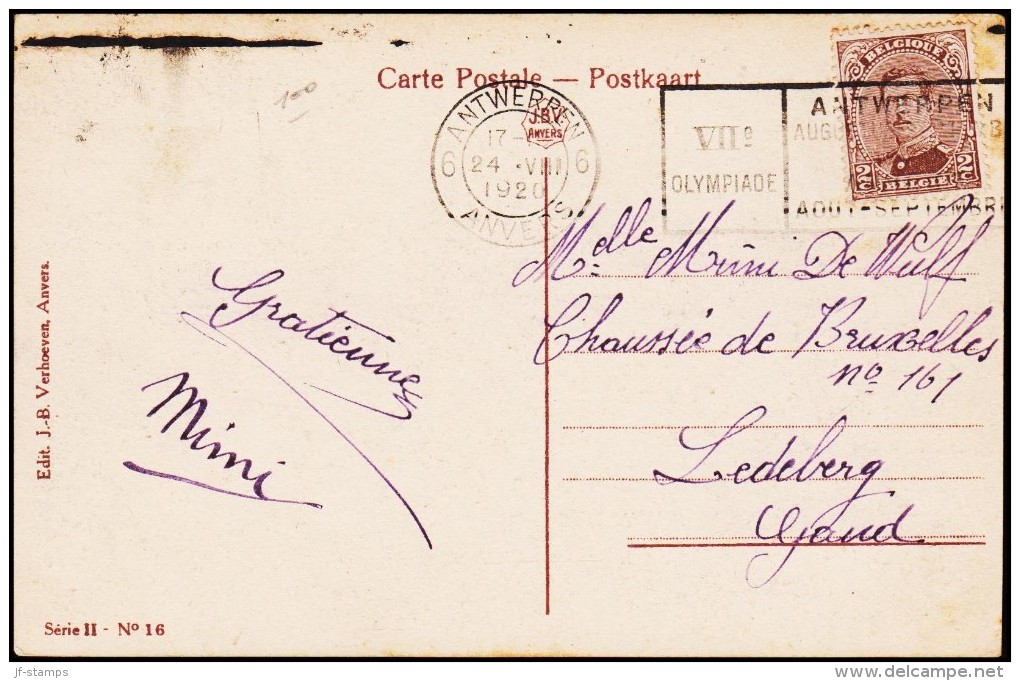 100
Carte Postale — Postkaart
BELGIQUE
2c 2c
BELGIË
ANTWERPEN
J.B.V.
ANVERS
6 17- 6
24 .VIII
1920
ANVERS
VIIe
OLYMPIADE
ANTWERPEN
AOUT-SEPTEMBRE
Melle Mimi De Wulf
Chaussée de Bruxelles
no 161
Ledeberg
Gand.
Gratienne
Mimi
Edit. J.-B. Verhoeven, Anvers.
Série II - No 16
jf-stamps
www.delcampe.net